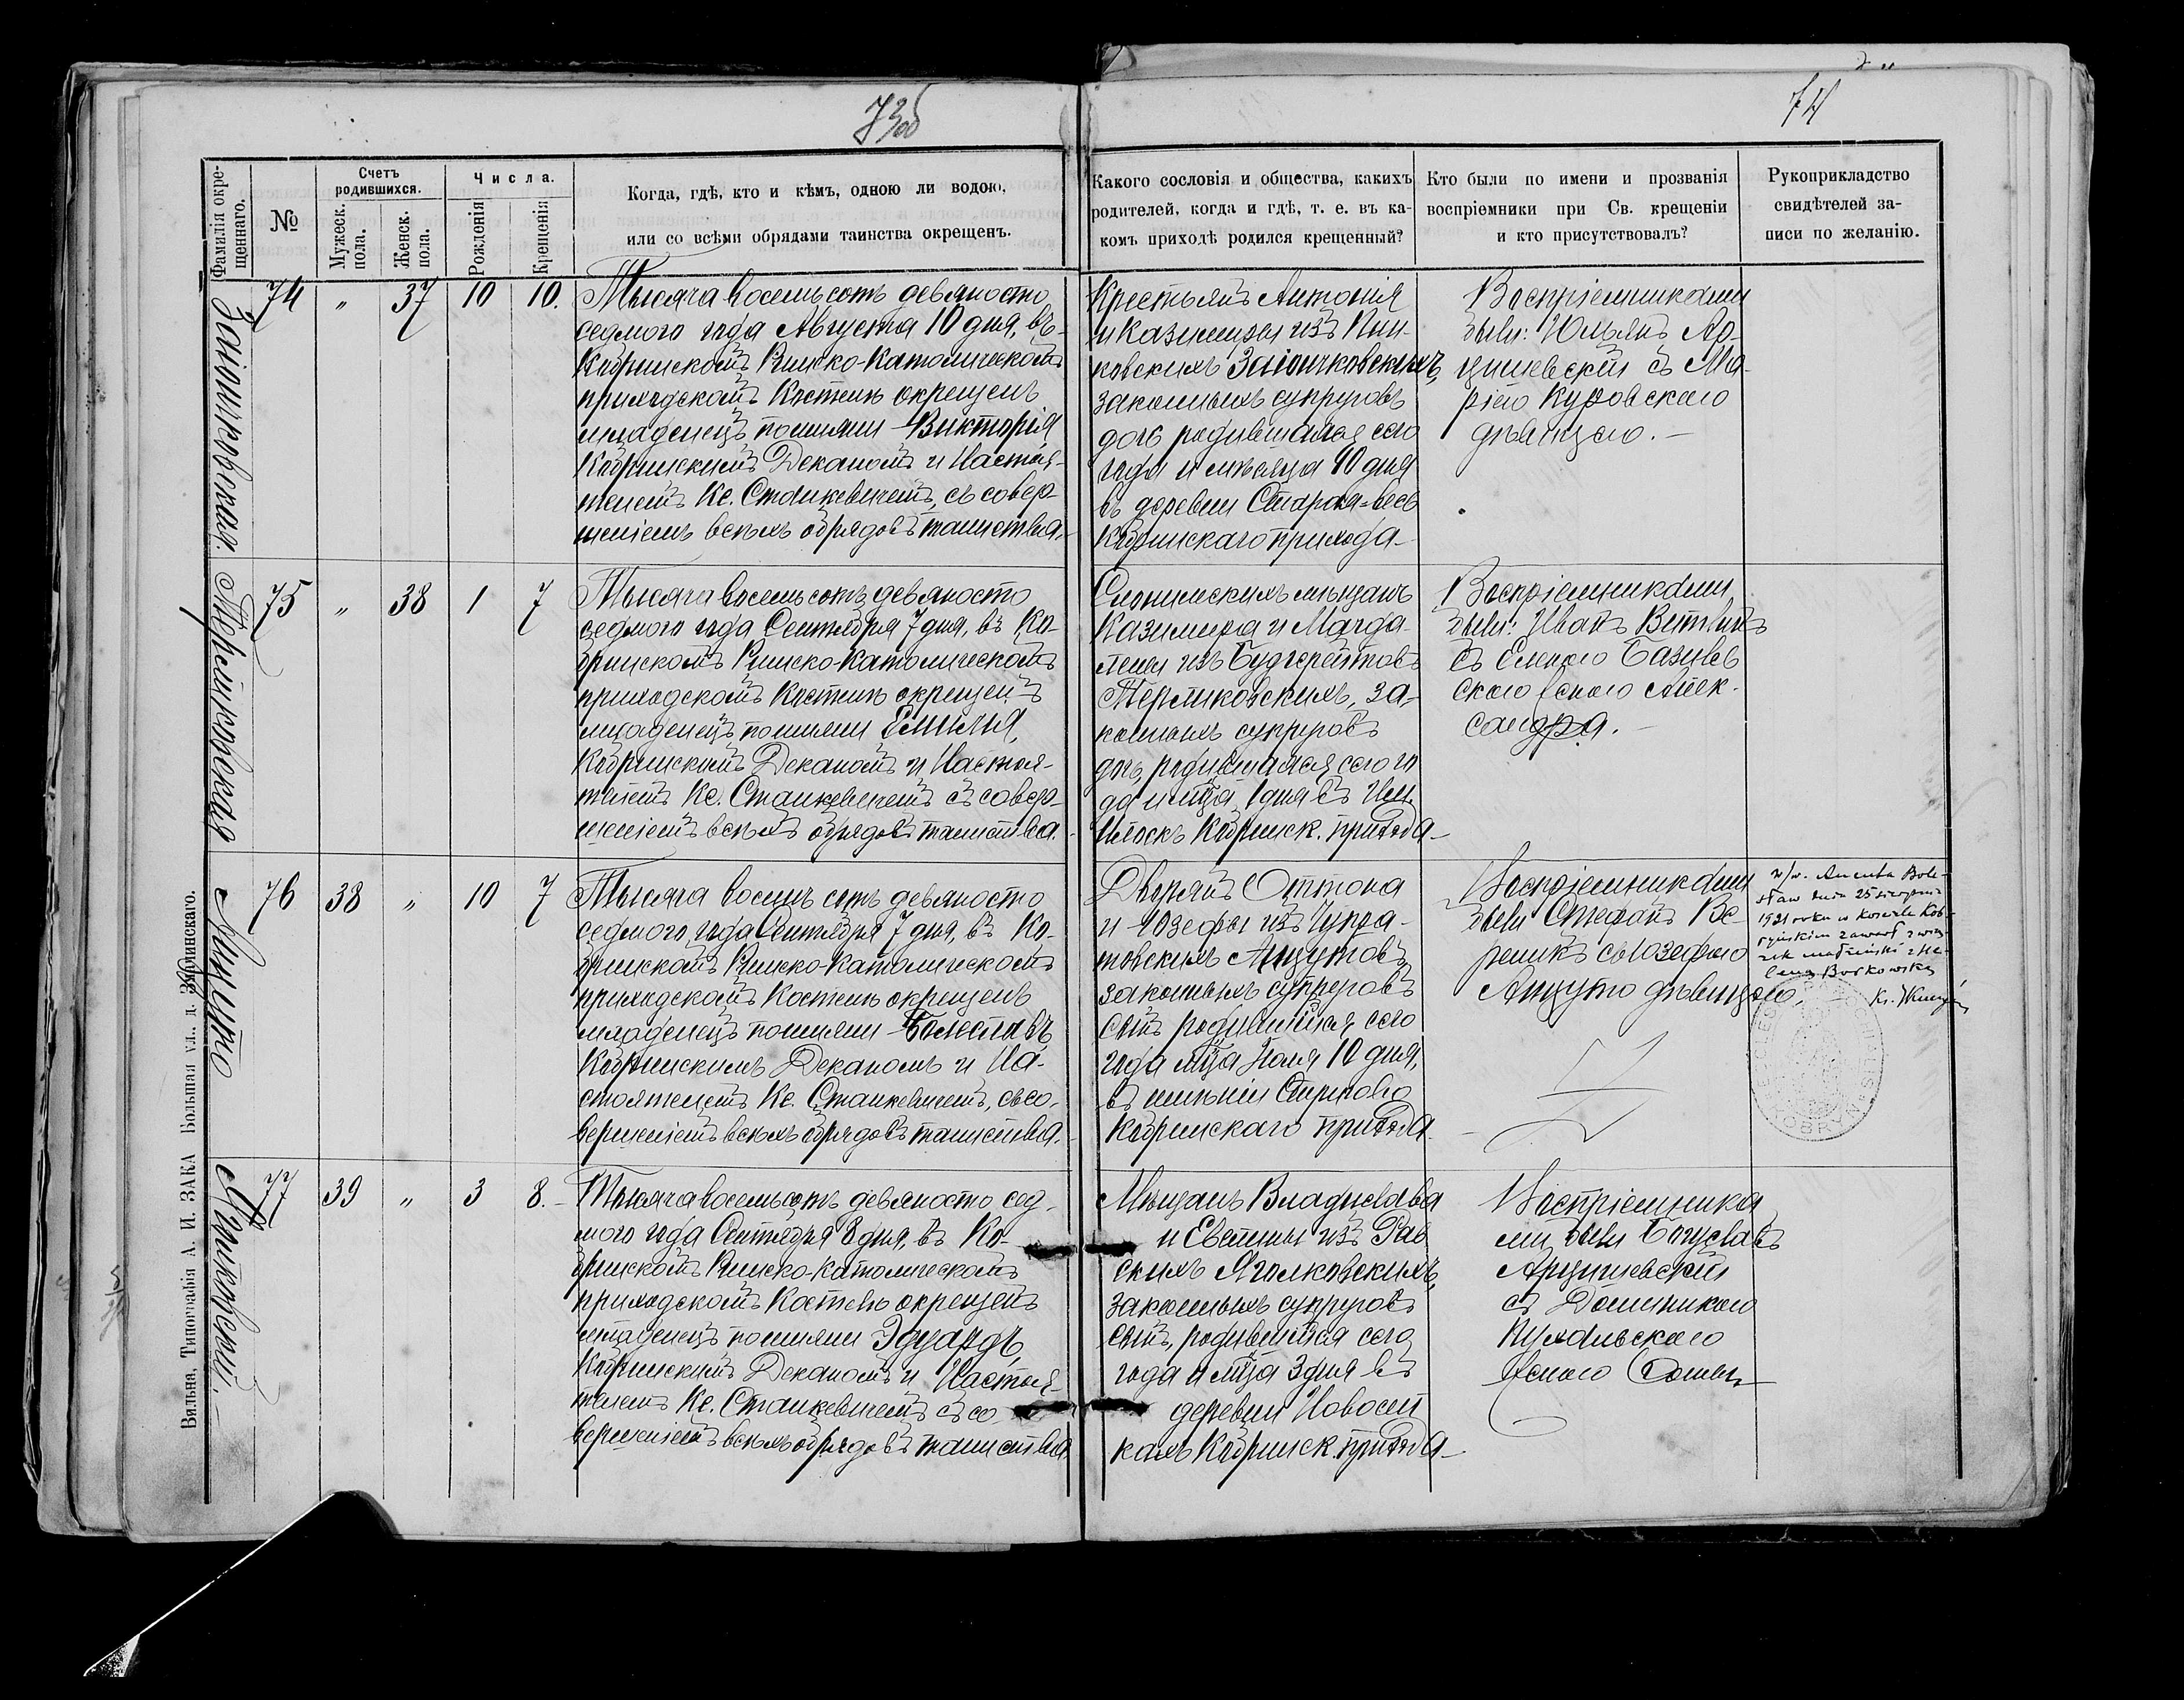 73об
74
Фамилія окре-
щеннаго.
№
Счетъ
родившихся.
Мужеск.
пола.
Женск.
пола.
Числа.
Рожденія
Крещенія
Когда, гдѣ, кто и кѣмъ, одною ли водою,
или со всѣми обрядами таинства окрещенъ.
Какого сословія и общества, какихъ
родителей, когда и гдѣ, т. е. въ ка-
комъ приходѣ родился крещенный?
Кто были по имени и прозванія
воспріемники при Св. крещеніи
и кто присутствовалъ?
Рукоприкладство
свидѣтелей за-
писи по желанію.
74 „ 37 10 10.
Тысяча восемьсотъ девяносто
седмого года Августа 10 дня, въ
Кобринскомъ Римско-Католическомъ
приходскомъ Костелѣ окрещенъ
младенецъ по имяни Викторія
Кобринскимъ Деканомъ и Настоя-
телемъ Кс. Станкевичемъ, съ совер-
шеніемъ всѣхъ обрядовъ таинства.
Крестьянъ Антонія
и Казимиры изъ
законныхъ супруговъ
дочь родившаяся сего
года и мѣсяца 10 дня
въ деревни Старая-весь
Кобринскаго прихода
Воспріемниками
были: Юльянъ Ар-
цишевскій съ Ма-
ріею Куровскою
дѣвицею.
Терликовская
75 „ 38 1 7
Тысяча восемьсотъ девяносто
седмого года Сентября 7 дня, въ Ко-
бринскомъ Римско-Католическомъ
приходскомъ Костелѣ окрещенъ
младенецъ по имяни Емилія,
Кобринскимъ Деканомъ и Настоя-
телемъ Кс. Станкевичемъ съ совер-
шеніемъ всѣхъ обрядовъ таинства.
Слонимскихъ мѣщанъ
Казимира и Магда-
лены изъ
Терликовскихъ, за-
конныхъ супруговъ
дочь, родившаяся сего го
да и мца 1 дня въ
Кобринск. прихода
Воспріемниками
были: Иванъ Витвикъ
съ Еленою Базилев
скою женою Алек-
сандра.
Анцуто
76 38 „ 10 7
Тысяча восемь сотъ девяносто
седмого года Сентября 7 дня, въ Ко-
бринскомъ Римско-Католическомъ
приходскомъ Костелѣ окрещенъ
младенецъ по имяни Болеславъ
Кобринскимъ Деканомъ и На-
стоятелемъ Кс. Станкевичемъ, съ со-
вершеніемъ всѣхъ обрядовъ таинства.
Дворянъ Оттона
и Юзефы изъ
Анцутовъ
законныхъ супруговъ
сынъ родившійся сего
года мца Іюля 10 дня,
въ имѣніи Стригово
Кобринскаго прихода
Воспріемниками
были Стефанъ Ве-
реникъ съ Юзефою
Анцуто дѣвицею.
w/w. Ancuta Bole-
sław dnia 25 sierpnia
1921 roku w kościele Kob-
ryńskim zawarł zwią-
zek małżeński z He-
leną Borkowską
77 39 „ 3 8.
Тысяча восемьсотъ девяносто сед-
мого года Сентября 8 дня, въ Ко-
бринскомъ Римско-Католическомъ
приходскомъ Костелѣ окрещенъ
младенецъ по имяни Эдуардъ,
Кобринскимъ Деканомъ и Настоя-
телемъ Кс. Станкевичемъ съ со
вершеніемъ всѣхъ обрядовъ таинства.
Мѣщанъ Владислава
и Евелины изъ Рав
скихъ Яголковскихъ,
законныхъ супруговъ
сынъ, родившійся сего
года и мца 3 дня въ
деревни Новосел
кахъ Кобринск. прихода
Воспріемника
ми были Богуславъ
Арцишевскій
съ Доминикою
женою
Вильна, Типографія А. И. ЗАКА Большая ул. д. Здроинскаго.